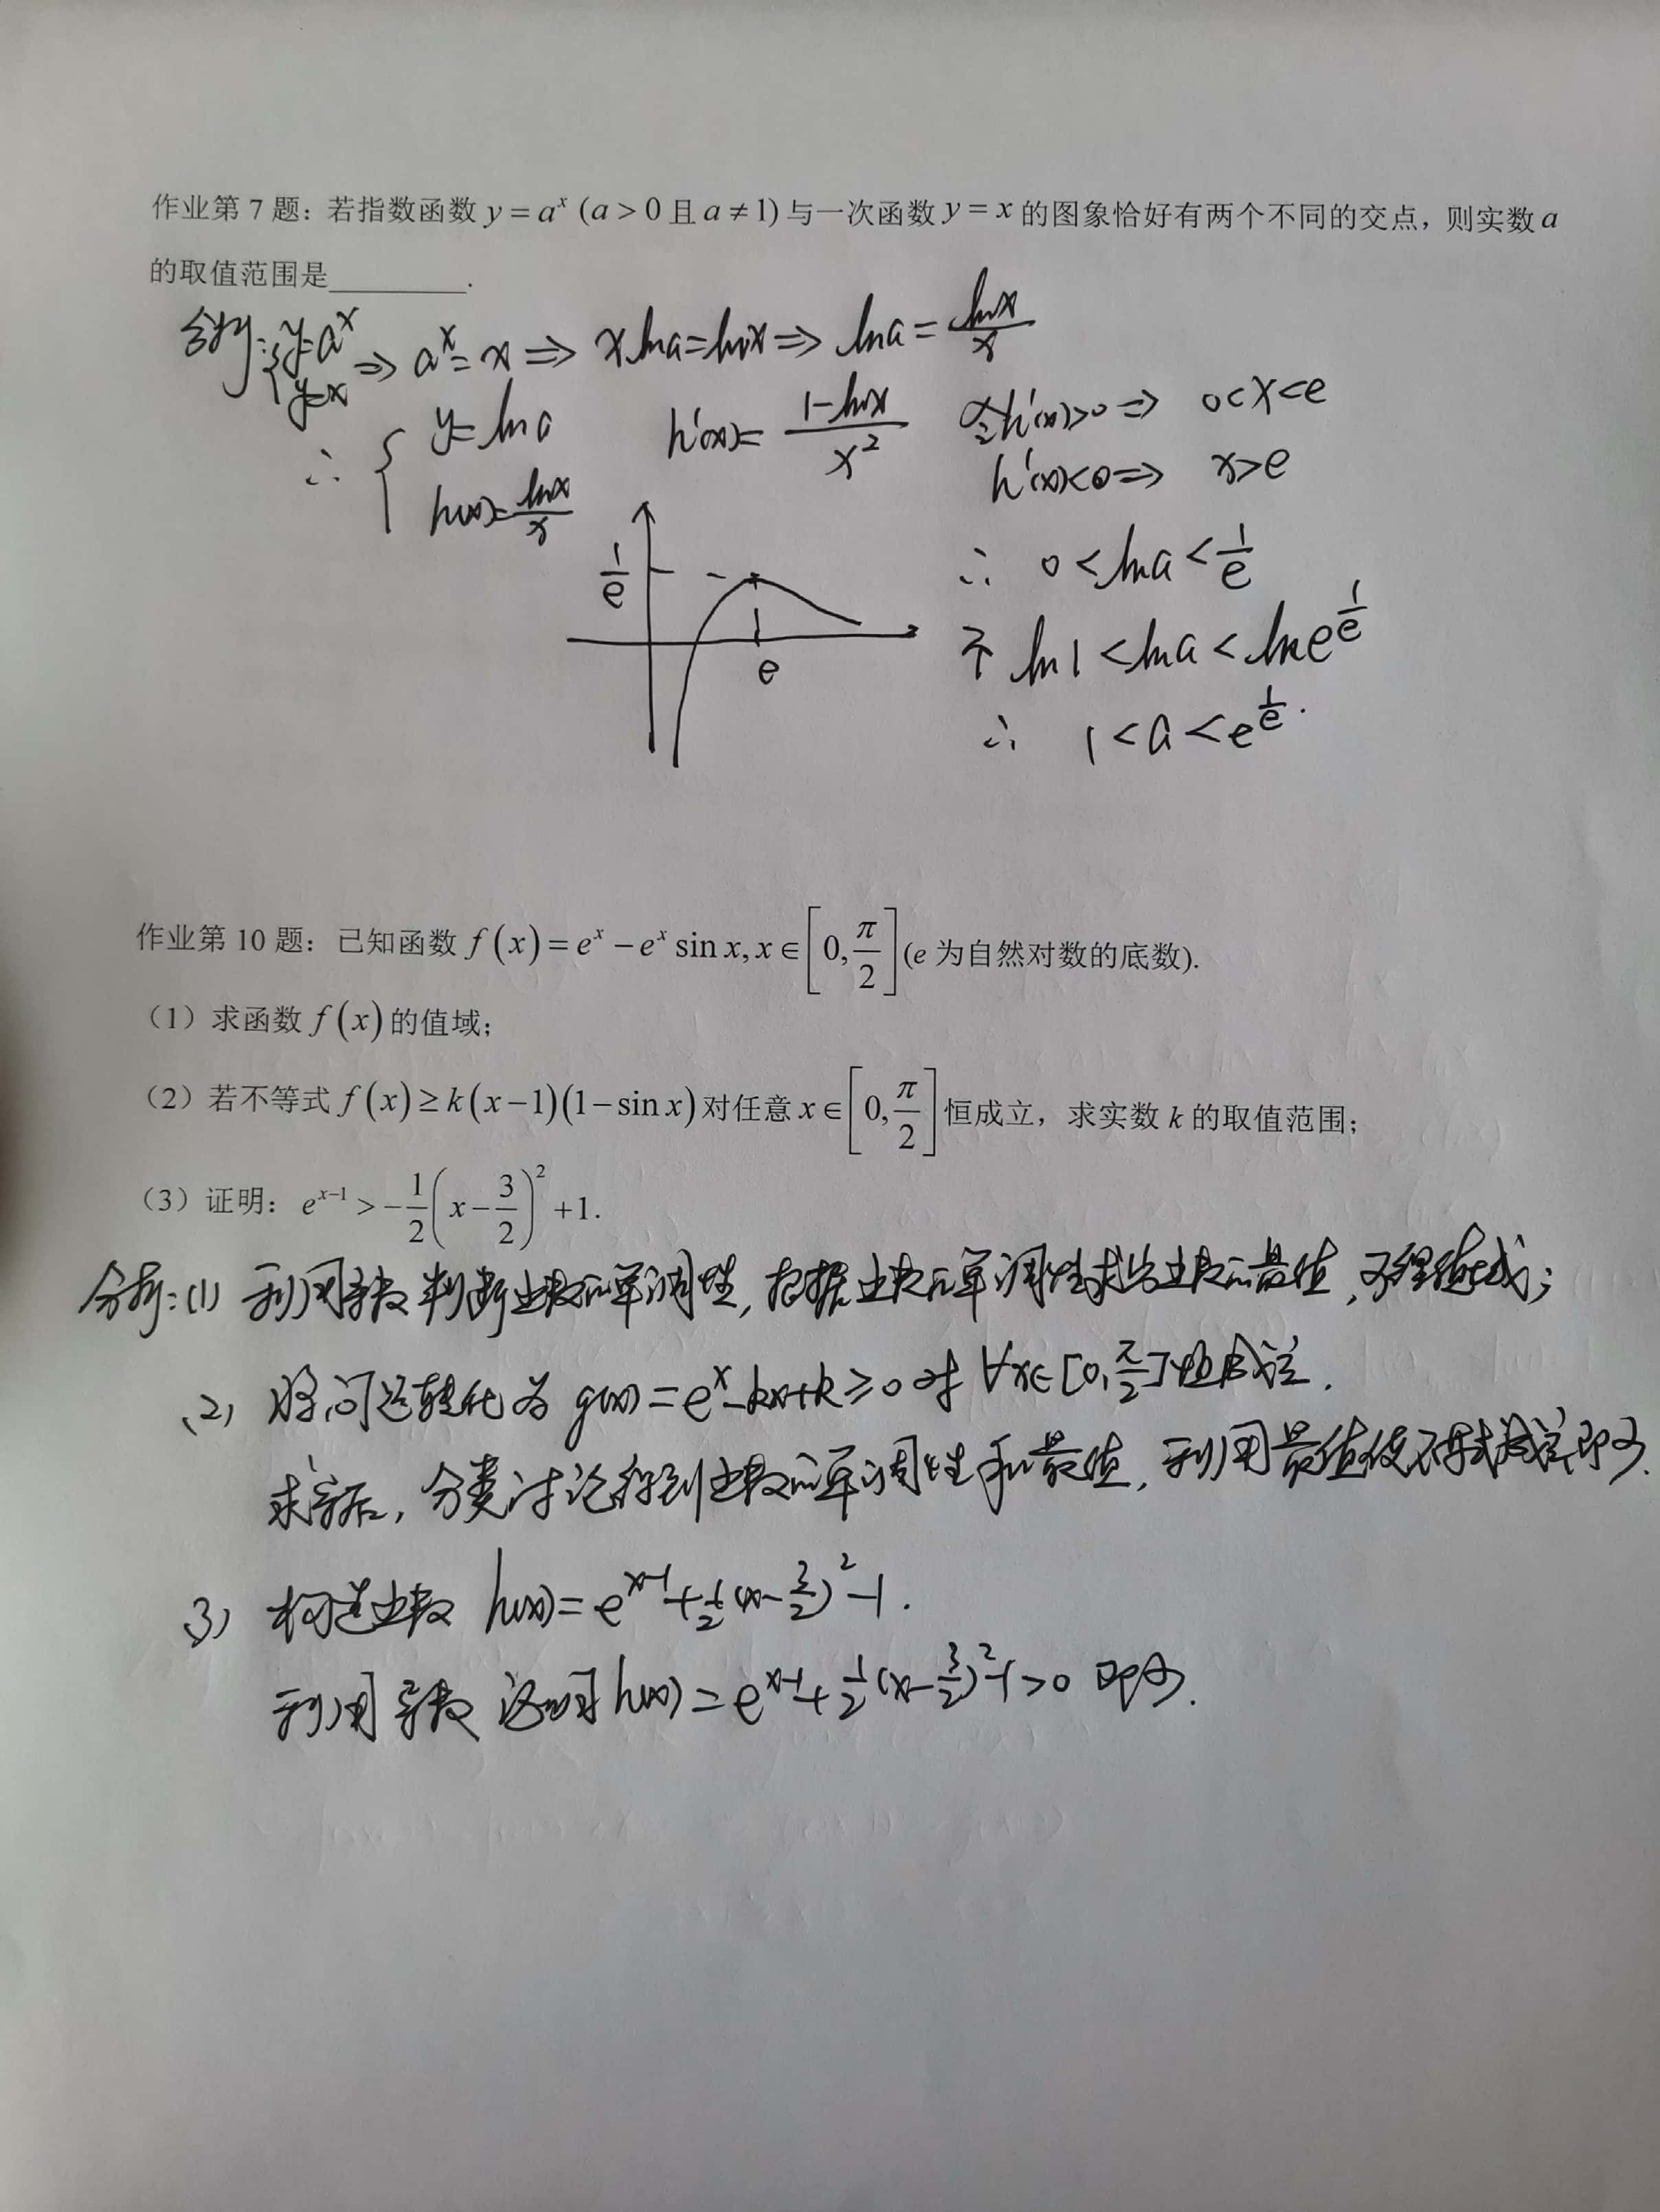 作业第 7 题：若指数函数 y = a^x (a > 0 且 a ≠ 1) 与一次函数 y = x 的图象恰好有两个不同的交点，则实数 a
的取值范围是________.
分析: { y=a^x y=x ⇒ a^x = x ⇒ x ln a = ln x ⇒ ln a = ln x / x
∴ { y = ln a
h(x) = ln x / x
h'(x) = (1 - ln x) / x^2
令 h'(x)>0 ⇒ 0<x<e
h'(x)<0 ⇒ x>e
1/e
e
∴ 0 < ln a < 1/e
ln 1 < ln a < ln e^(1/e)
∴ 1 < a < e^(1/e).
作业第 10 题：已知函数 f(x) = e^x − e^x sin x, x ∈ [0, π/2] (e 为自然对数的底数).
（1）求函数 f(x) 的值域；
（2）若不等式 f(x) ≥ k(x−1)(1−sin x) 对任意 x ∈ [0, π/2] 恒成立，求实数 k 的取值范围；
（3）证明：e^(x−1) > −1/2 (x − 3/2)^2 + 1.
分析: (1) 利用导数判断函数的单调性, 根据函数的单调性求出函数的最值, 可得值域;
(2) 将问题转化为 g(x) = e^x - kx + k ≥ 0 对 ∀x∈[0, π/2] 恒成立.
求导后, 分类讨论得到函数的单调性和最值, 利用最值使不等式成立即可.
(3) 构造函数 h(x) = e^(x-1) + 1/2 (x - 3/2)^2 - 1.
利用导数证明 h(x) = e^(x-1) + 1/2 (x - 3/2)^2 - 1 > 0 即可.